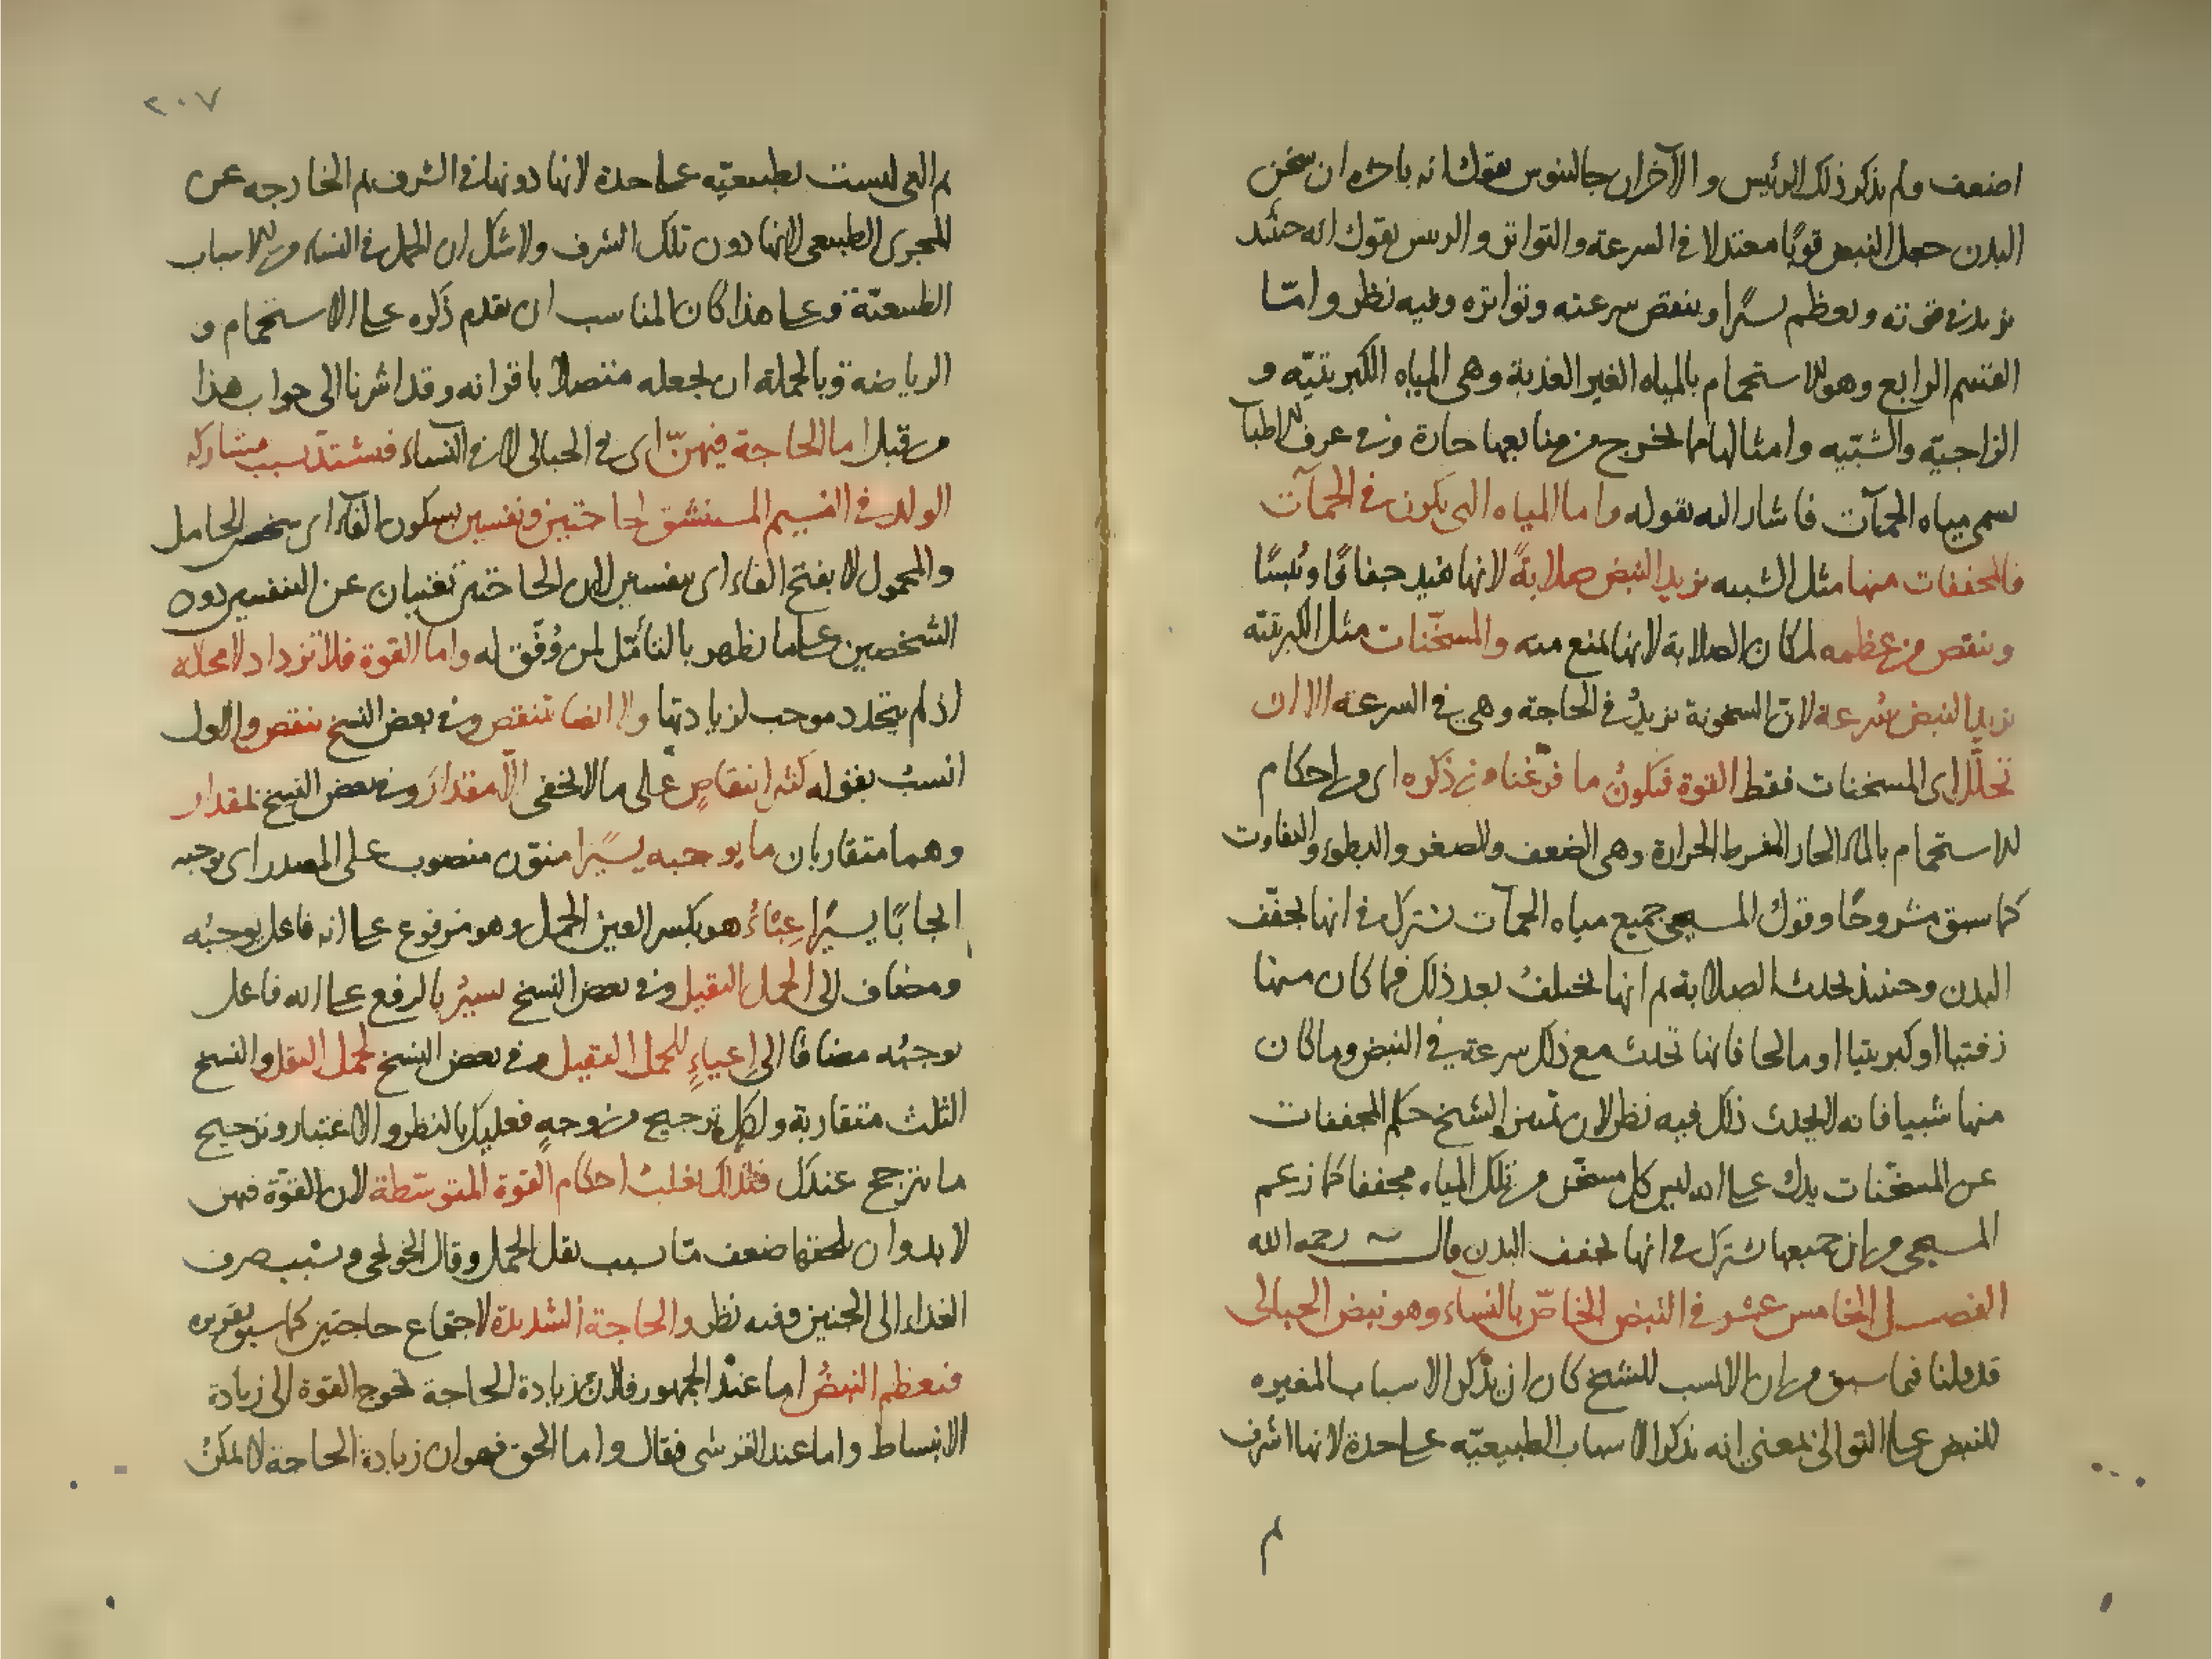 اضعف ولم يذكر ذلك الرئيس والآخر ان جالينوس يقول انه باخره ان سخن
البدن جعل النبض قويًا معتدلا في السرعة والتواتر والرئيس يقول انه حينئذ
يزيد في قوته ويعظم يسيرًا وينقص سرعته وتواتره وفيه نظر وامّا
القسم الرابع وهو الاستحمام بالمياه الغير العذبة وهي المياه الكبريتيّه و
الزاجيّه والشبّيه وامثالها مما يخرج من منابعها حارة وفي عرف الاطبا
يسمى مياه الحمآت فاشار اليه بقوله واما المياه التي تكون في الحمآت
فالمجففات منها مثل الشبيه يزيد النبض صلابةً لانها تفيد جفافًا ويُبسًا
وينقص من عظمه لمكان الصلابة لانها تمنع منه والمسخّنات مثل الكبريتيّه
يزيد النبض سُرعة لان السخونة يزيدُ في الحاجة وهي في السرعة الا ان
تحلّل اي المسخنات فقط القوة فيكونُ ما فرّغنا من ذكره اي من احكام
الاستحمام بالماء الحار المفرط الحرارة وهي الضعف والصغر والبطوء والتفاوت
كما سبق مشروحًا وقول المسيحي جميع مياه الحمآت تشترك في انها يجفّف
البدن وحينئذ يحدث الصلابة ثم انها يختلفُ بعد ذلك فما كان منها
زفتيا او كبريتيا او مالحا فانها تحدث مع ذلك سرعة في النبض وما كان
منها شبيا فانه لا يحدث ذلك فيه نظر لان تمييز الشيخ حكم المجففات
عن المسخّنات يدل على انه ليس كل مسخّن من تلك المياه مجففا كما زعم
المسيحي من ان جميعها تشترك في انها تجفف البدن قال رحمه الله
الفصل الخامس عشر في النبض الخاصّ بالنساء وهو نبض الحبالى
قد قلنا فيما سبق من ان الانسب للشيخ كان ان يذكر الاسباب المغيره
للنبض على التوالي بمعنى انه يذكر الاسباب الطبيعيّه على حدة لانها اشرف
ثم
٢٠٧
ثم التي ليست بطبيعيّه على حدة لانها دونها في الشرف ثم الخارجه عن
المجرى الطبيعي لانها دون تلك الشرف ولا شك ان الحمل في النساء من الاسباب
الطبيعيّة وعلى هذا كان المناسب ان يقدم ذكره على الاستحمام و
الرياضة وبالجملة ان يجعله متصلا باقرانه وقد اشرنا الى جواب هذا
من قبل اما الحاجة فيهنّ اي في الحبالى لا في النساء فيشتدّ بسبب مشاركه
الولد في النسيم المستنشق لحاجتين ونفسين بسكون الفاء اي شخص الحامل
والمحمول لا بفتح الفاء اي بنفسين لان الحاجتين تغنيان عن النفسين دون
الشخصين على ما يظهر بالتأمّل لمن وُفّق له واما القوة فلا تزداد لا محالة
اذ لم يتجدد موجب لزيادتها ولا ايضا تنقص وفي بعض النسخ ينقص والاول
انسبُ بقوله كثير انتقاصٍ على ما لا يخفى الّا مقدارَ وفي بعض النسخ بمقدار
وهما متقاربان ما يوجبه يسيًرا منوّن منصوب على المصدر اي يوجبه
ايجابًا يسيًرا عِبْاءُ هو بكسر العين الحمل وهو مرفوع على انه فاعل يوجبُه
ومضاف الى الحمل الثقيل وفي بعض النسخ يسيُر بالرفع على انه فاعل
يوجبُه مضافًا الى اِعياءٍ للحمل الثقيل وفي بعض النسخ لحمل الثقل والنسخ
الثلث متقاربة ولكلٍ ترجيح من وجهٍ فعليك بالنظر والاعتبار وترجيح
ما يترجح عندك فلذلك يغلبُ احكام القوة المتوسّطة لان القوّة فيهن
لا بد وان يلحقها ضعف مّا بسبب ثقل الحمل وقال الخونجي وبسبب صرف
الغذاء الى الجنين وفيه نظر والحاجة الشديدة لاجتماع حاجتين كما سبق تقريره
فيعظم النبضُ اما عند الجمهور فلان زيادة الحاجة تحوج القوة الى زيادة
الانبساط واما عند القرشي فقال واما الحق فهو ان زيادة الحاجة لا يمكنُ